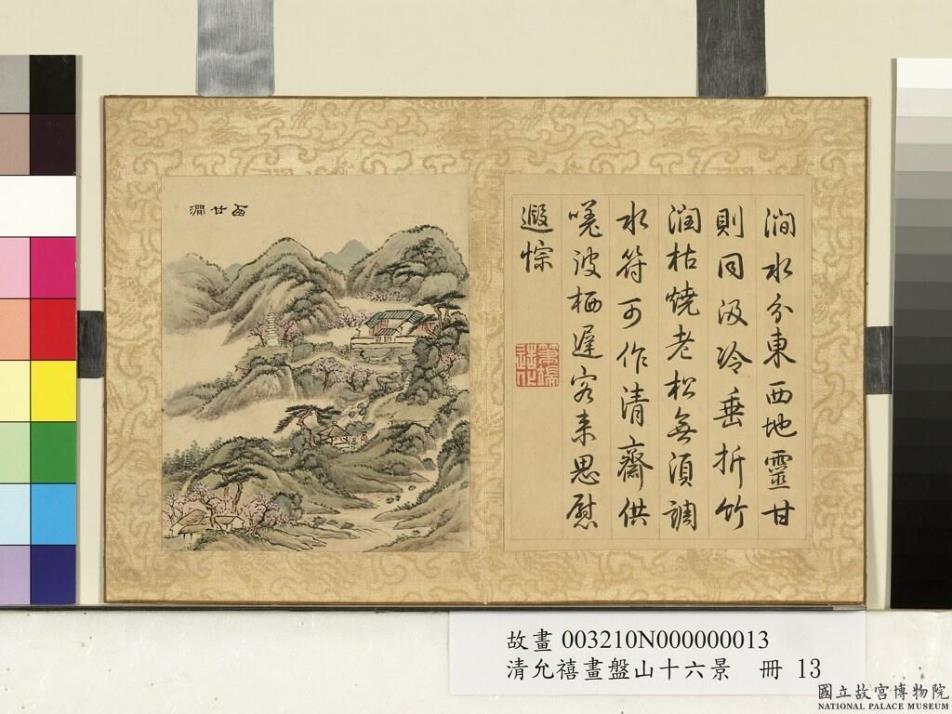 澗水分東西地靈甘
則同汲冷垂折竹
潤枯燒老松無須調
水符可作清齋供
嗟彼栖遲客来思慰
遐悰
筆端
造化
西甘澗
故畫 003210N000000013
清允禧畫盤山十六景 冊 13
國立故宮博物院
NATIONAL PALACE MUSEUM